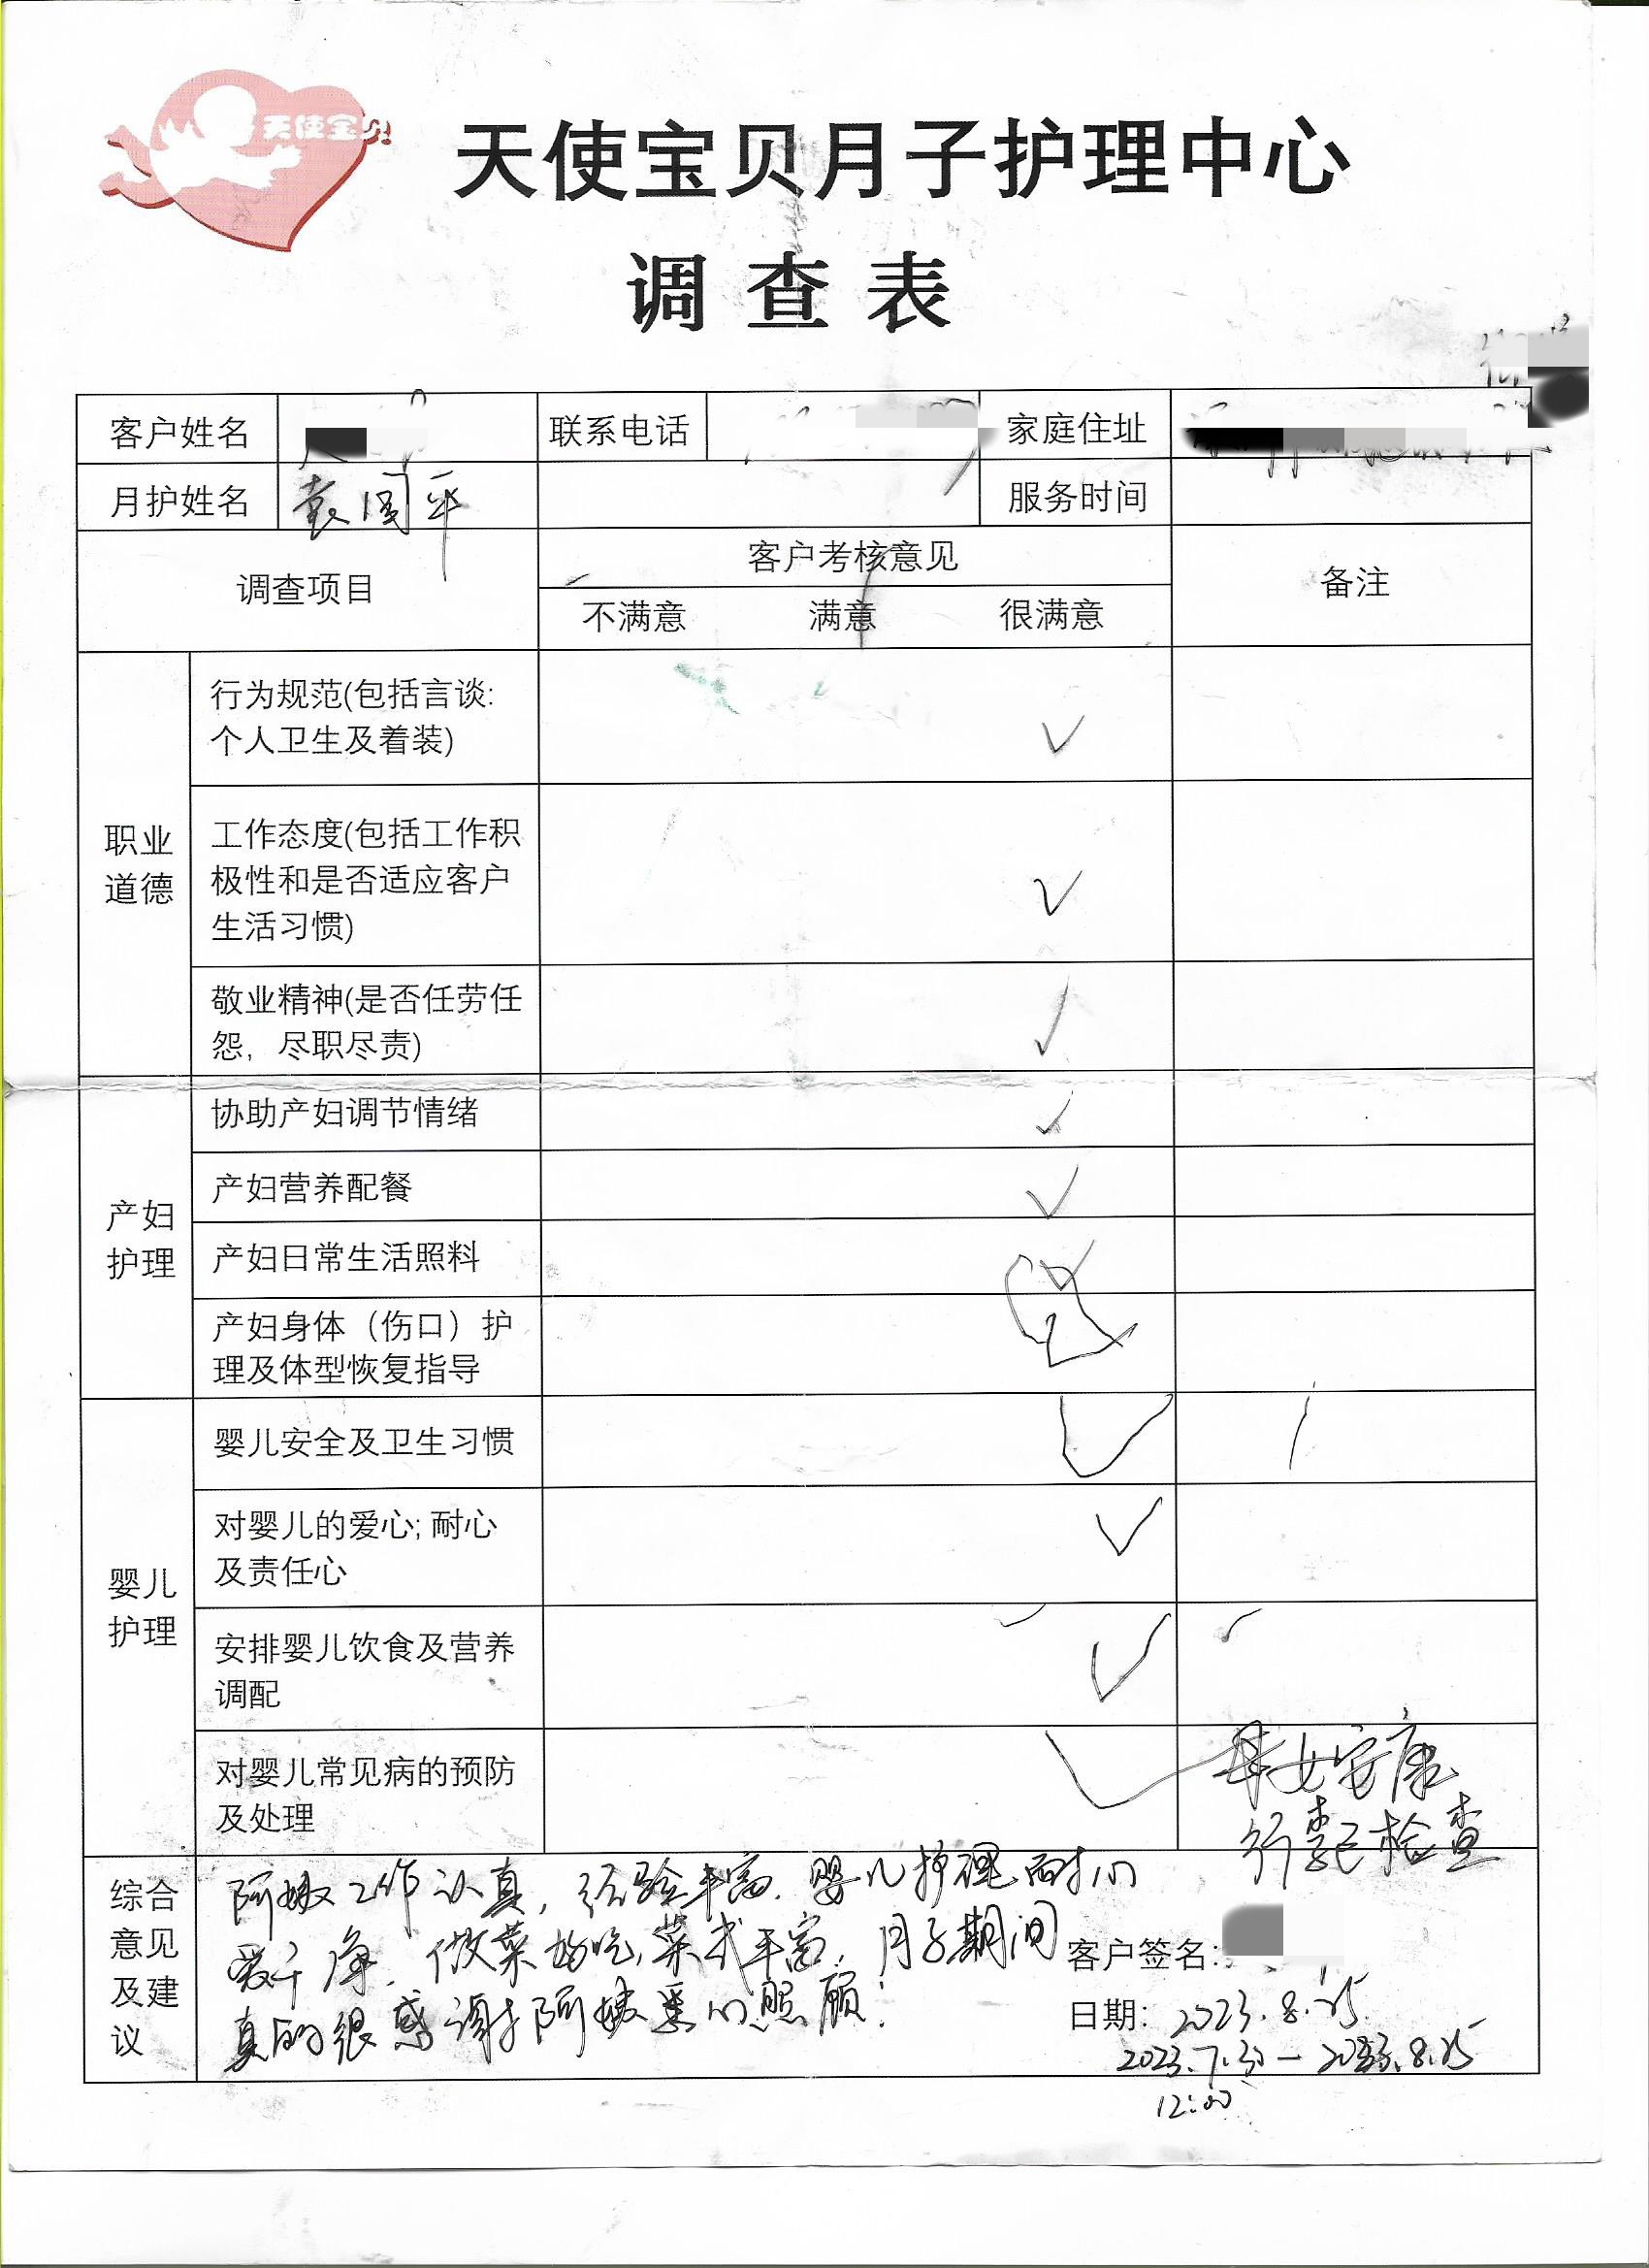 天使宝贝
天使宝贝月子护理中心
调查表
客户姓名 联系电话 家庭住址
月护姓名 袁国平 服务时间
调查项目 客户考核意见 备注
不满意 满意 很满意
职业
道德
行为规范(包括言谈:
个人卫生及着装)
工作态度(包括工作积
极性和是否适应客户
生活习惯)
敬业精神(是否任劳任
怨，尽职尽责)
产妇
护理
协助产妇调节情绪
产妇营养配餐
产妇日常生活照料
产妇身体（伤口）护
理及体型恢复指导
婴儿
护理
婴儿安全及卫生习惯
对婴儿的爱心; 耐心
及责任心
安排婴儿饮食及营养
调配
对婴儿常见病的预防
及处理
母女安康
行李已检查
综合
意见
及建
议
阿姨工作认真，经验丰富，婴儿护理耐心
爱干净，做菜好吃，菜式丰富，月子期间
真的很感谢阿姨的照顾！
客户签名:
日期: 2023.8.25
2023.7.30一2023.8.25
12:00